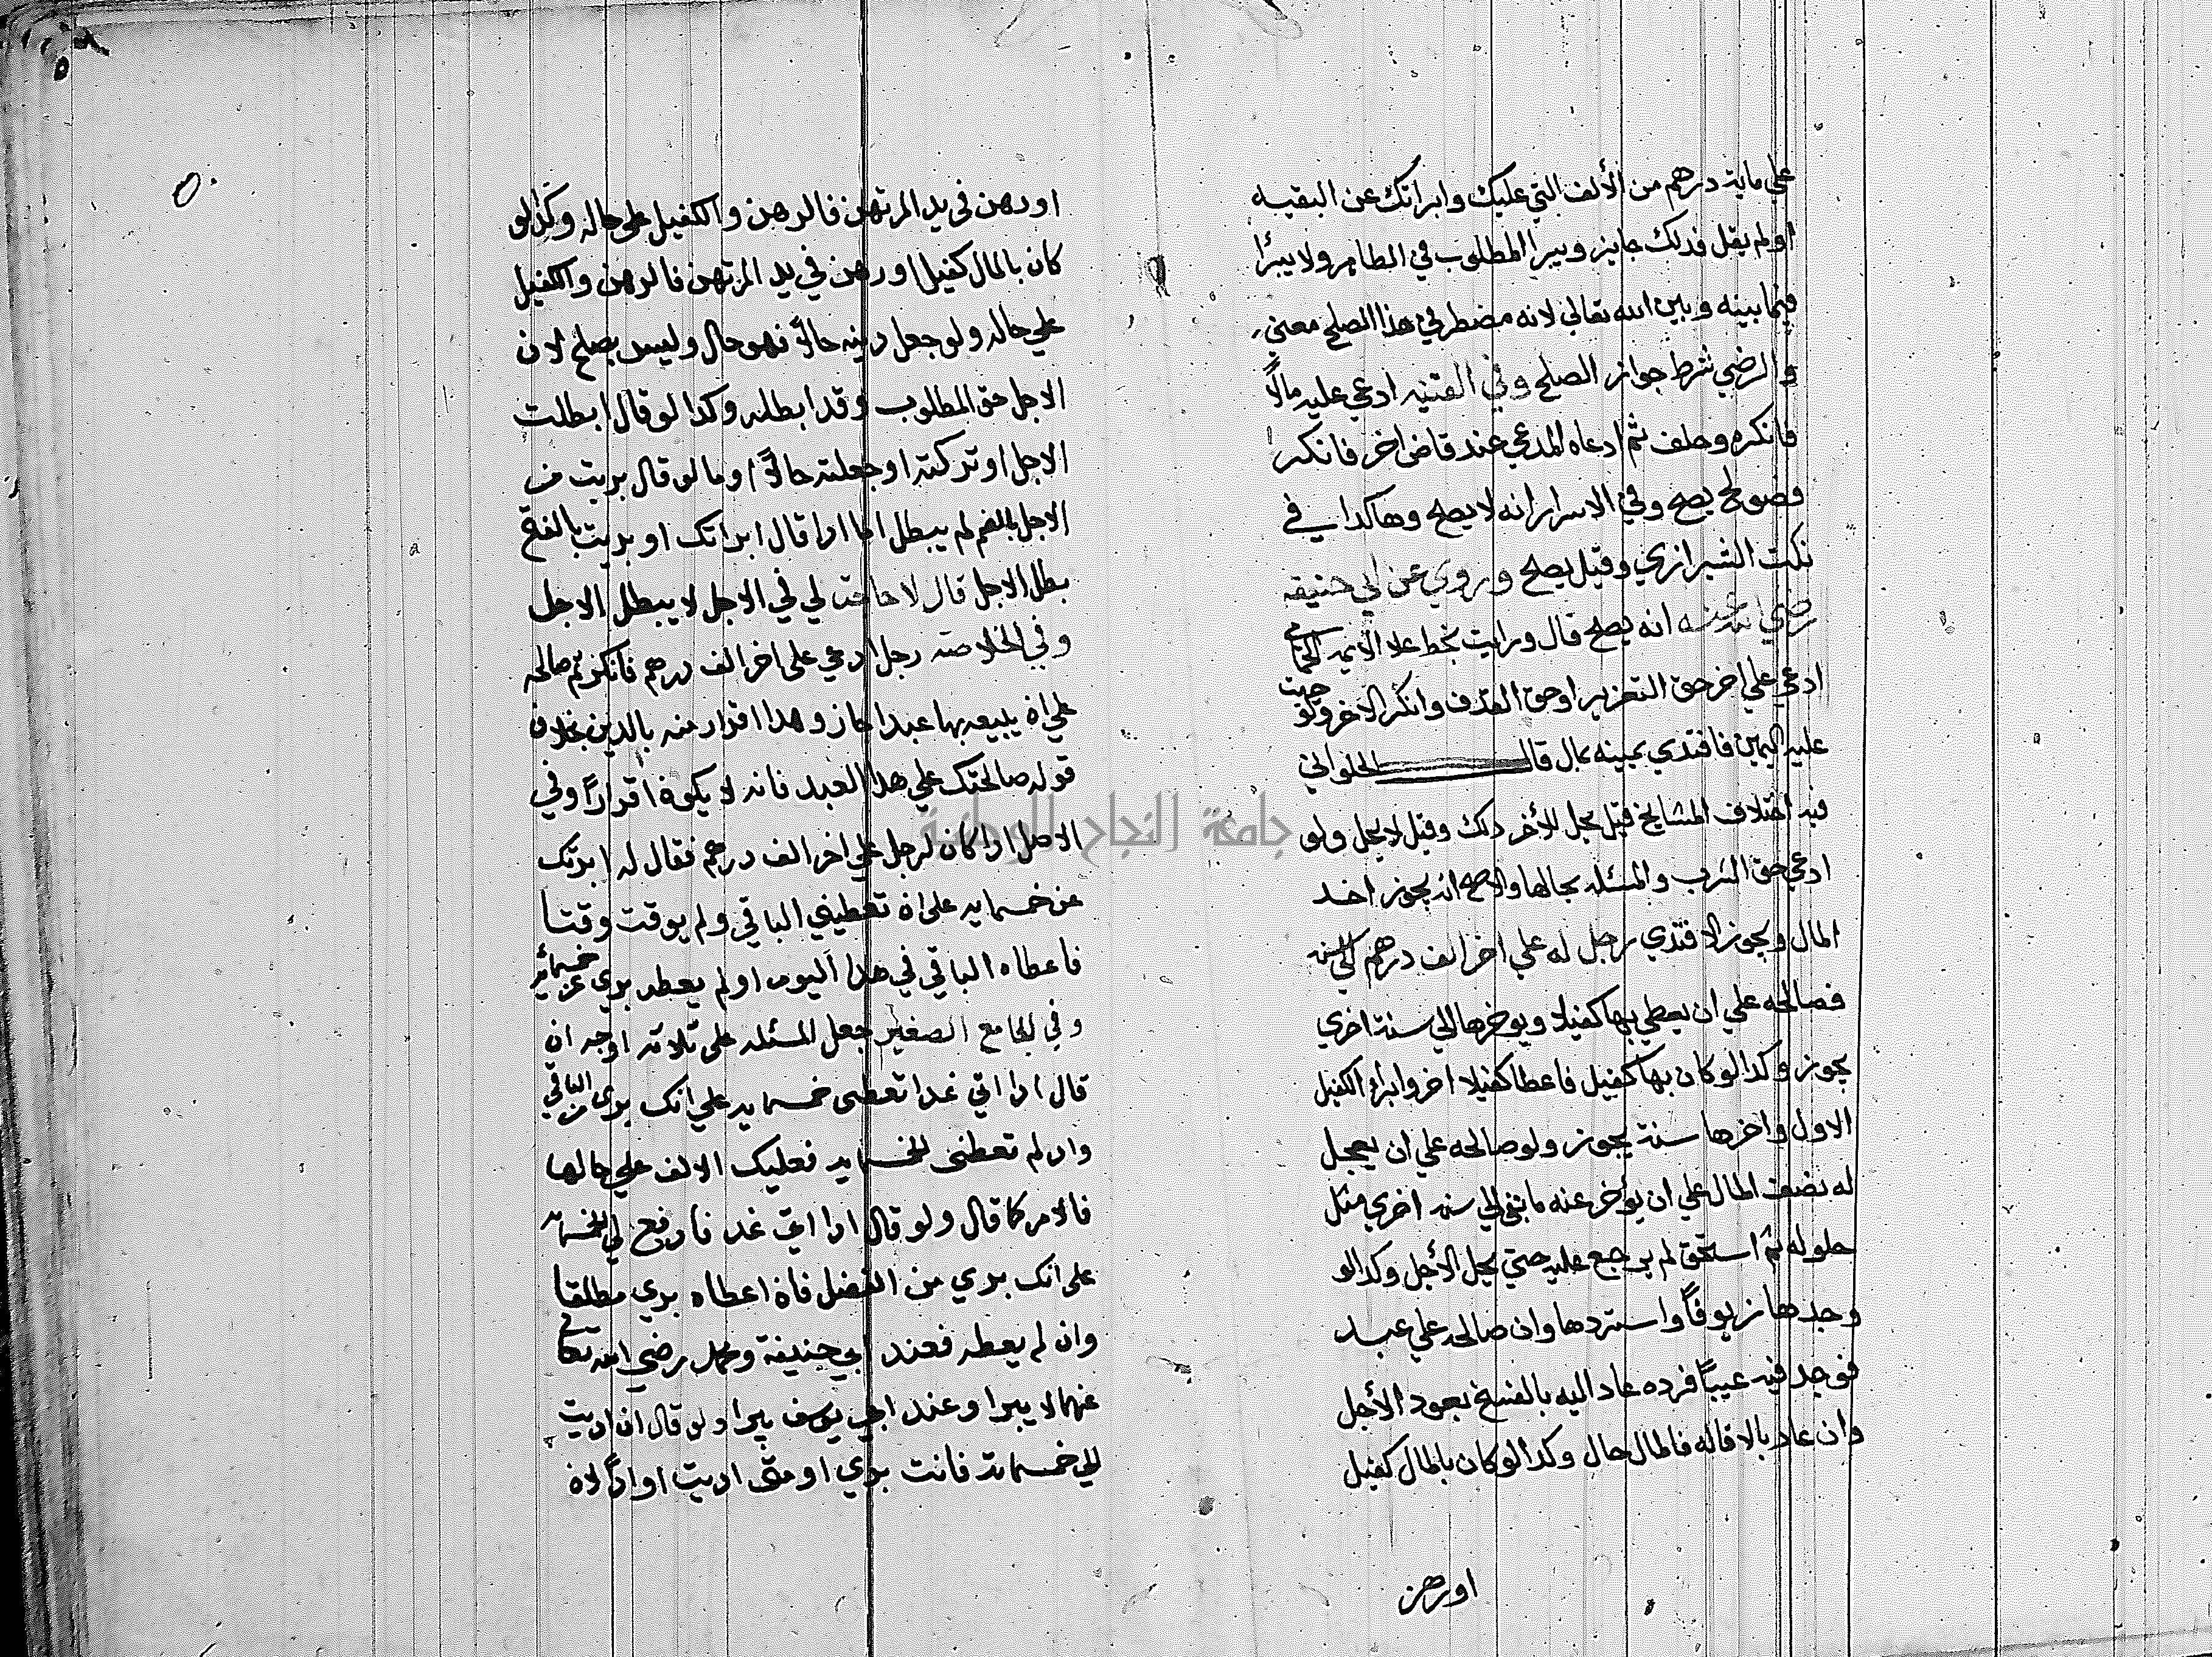 علي ماية درهم من الألف التي عليك وابراتك عن البقيه
او لم يقل فدلك جايز ويبرا المطلوب في الظاهر ولا يبرأ
فيما بينه وبين الله تعالي لانه مضطر في هذا الصلح معني
والرضي شرط جواز الصلح وفي القنيه ادعي عليه مالاً
فانكره وحلف ثم ادعاه المدعي عند قاض اخر فانكر
فصولح يصح وفي الاسرار انه لا يصح وهاكدا في
نكت الشيرازي وقيل يصلح وروي عن ابي حنيفه
رضي عنه انه يصح قال ورايت بخط علا الايمه
ادعي علي اخر حق التعزير او حق القدف وانكر الاخر وتوجهت
عليه اليمين فافتدي يمينه بمال قال الحلواني
فيه اختلاف المشايخ قيل يحل للأخر دلك وقيل لا يحل ولو
ادعي حق الشرب والمسئله بحالها والاصح انه يجوز اخد
المال ويجوز الافتدي رجل له علي اخر الف درهم الي سنه
فصالحه علي ان يعطي بها كفيلا ويوخرها الي سنة اخري
يجوز وكدا لو كان بها كفيل فاعطا كفيلا اخر وابراء الكفيل
الاول واخرها سنة يجوز ولو صالحه علي ان يعجل
له نصف المال علي ان يؤخر عنه ما بقي الي سنه اخري مثل
حلوله ثم استحق لم يرجع عليه حتي يحل الأجل وكدا لو
وجدها زيوفاً واستردها وان صالحه علي عبد
فوجد فيه عيباً فرده عاد اليه بالفسخ يعود الأجل
وان عاد بالاقاله فالمال حال وكدا لو كان بالمال كفيل
اورهن
اورهن في يد المرتهن فالرهن والكفيل علي حاله وكدا لو
كان بالمال كفيل اورهن في يد المرتهن فالرهن والكفيل
علي حاله ولو جعل دينه حالاً فهو حال وليس بصلح لان
الاجل حق المطلوب وقد ابطله وكدا لو قال ابطلت
الاجل او تركته او جعلته حالاً اوما لو قال بريت من
الاجل بالضم لم يبطل اما ادا قال ابراتك او بريت بالفتح
بطل الاجل قال لا حاجت لي في الاجل لا يبطل الاجل
وفي الخلاصه رجل ادعي علي اخر الف درهم فانكر ثم صالحه
علي ان يبيعه بها عبدا جاز وهدا اقرار منه بالدين بخلاف
قوله صالحتك علي هدا العبد فانه لا يكون اقراراً وفي
الاصل ادا كان لرجل علي اخر الف درهم فقال له ابرتك
عن خمسمايه علي ان تعطيني الباقي ولم يوقت وقتا
فاعطاه الباقي في هدا اليوم او لم يعطه بري عن خمسمائه
وفي الجامع الصغير جعل المسئله علي تلاته اوجه ان
قال ادا اتي غدا تعطي خمسمايه علي انك بري من الباقي
وان لم تعطني الخمسمايه فعليك الالف علي حالها
فالامر كما قال ولو قال ادا اتي غد فادفع لي الخمسمايه
علي انك بري من الفضل فان اعطاه بري مطلقا
وان لم يعطه فعند ابي حنيفة ومحمد رضي الله تعالي
عنهما لا يبرا وعند ابي يوسف يبرا ولو قال ان اديت
الي خمسمائة فانت بري او متى اديت او اداً لان
جامعة النجاح الوطنية